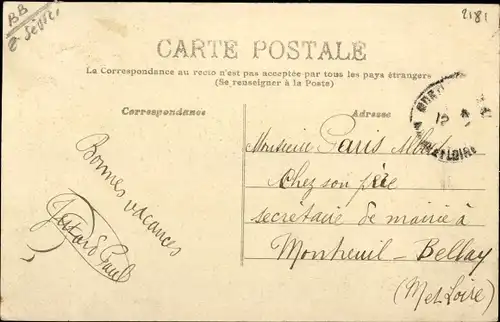 BB
2181
CARTE POSTALE
La Correspondance au recto n'est pas acceptée par tous les pays étrangers
(Se renseigner à la Poste)
Correspondance
Adresse
Bonnes vacances
Paul
Monsieur Paris Albert
Chez son père
secrétaire de mairie à
Montreuil-Bellay
(M et Loire)